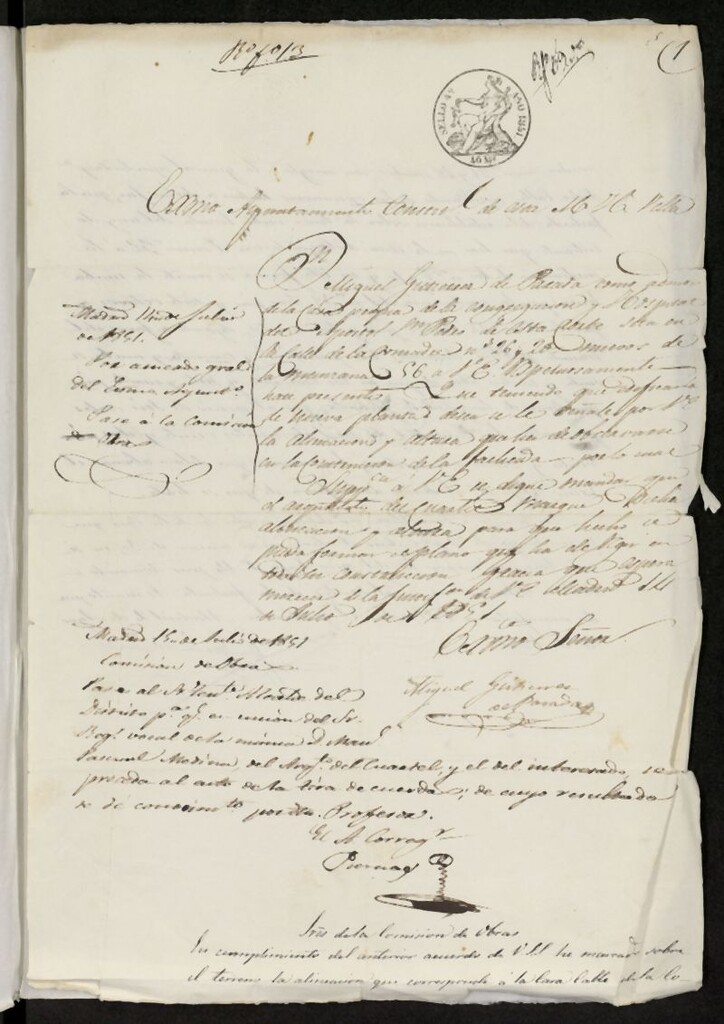 1
SELLO 4º AÑO 1851
40 Ms
Excmo Ayuntamiento Const.l de esta M. H. Villa
Dn Miguel Gutierrez de Parada como
de la Casa propia de la congregacion y Hospital
del Apostol Sn Pedro de esta Corte sita en
la Calle de la Comadre nos 26 y 28 nuevos de
la manzana 56 á V.E. Respetuosamente
hace presente: Que teniendo que edificarla
de nueva planta desea se le señale por V.E.
la alineacion y altura que ha de observarse
en la Construccion de la fachada por lo cual
Suppca á V.E. se digne mandar que
el arquitecto del Cuartel marque dicha
alineacion y altura para que hecho se
pueda formar el plano que ha de regir en
dicha construccion gracia que espera
merecer de la de V.E. Madrid 11
de Julio de 1851
Excmo Señor
Miguel Gutierrez
de Parada
Madrid 14 de Julio
de 1851.
Por acuerdo gral
del Excmo Ayunto
Pase á la Comision
de Obras
Madrid 15 de Julio de 1851
Comision de Obras
Pase al Sr Tente Alcalde del
Distrito pa qe en union del Sr
Regr vocal de la misma D. Manl
Pascual Medina, del Arqto del Cuartel, y el del interesado, se
proceda al acto de la tira de cuerda; de cuyo resultado
se de conocimto por dho Profesor.
El A. Corregr
Piernas
Sres de la Comision de Obras
En cumplimiento del anterior acuerdo de V.SS. he marcado sobre
el terreno la alineacion que corresponde á la Casa Calle de la Co-